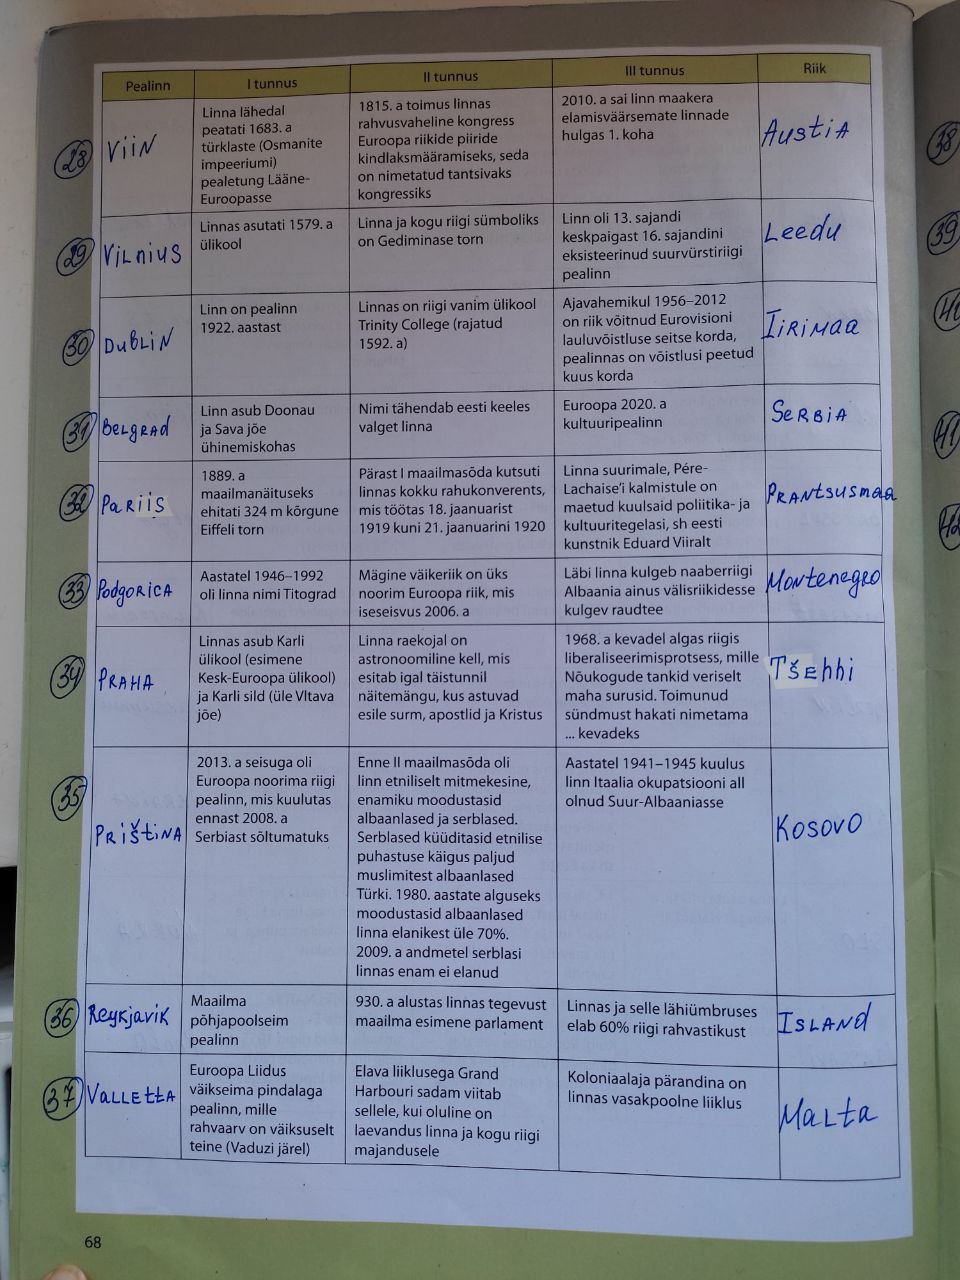 Pealinn I tunnus II tunnus III tunnus Riik
28
Viin
Linna lähedal
peatati 1683. a
türklaste (Osmanite
impeeriumi)
pealetung Lääne-
Euroopasse
1815. a toimus linnas
rahvusvaheline kongress
Euroopa riikide piiride
kindlaksmääramiseks, seda
on nimetatud tantsivaks
kongressiks
2010. a sai linn maakera
elamisväärsemate linnade
hulgas 1. koha
AustiA
29
Vilnius
Linnas asutati 1579. a
ülikool
Linna ja kogu riigi sümboliks
on Gediminase torn
Linn oli 13. sajandi
keskpaigast 16. sajandini
eksisteerinud suurvürstiriigi
pealinn
Leedu
30
Dublin
Linn on pealinn
1922. aastast
Linnas on riigi vanim ülikool
Trinity College (rajatud
1592. a)
Ajavahemikul 1956–2012
on riik võitnud Eurovisioni
lauluvõistluse seitse korda,
pealinnas on võistlusi peetud
kuus korda
Iirimaa
31
Belgrad
Linn asub Doonau
ja Sava jõe
ühinemiskohas
Nimi tähendab eesti keeles
valget linna
Euroopa 2020. a
kultuuripealinn
Serbia
32
Pariis
1889. a
maailmanäituseks
ehitati 324 m kõrgune
Eiffeli torn
Pärast I maailmasõda kutsuti
linnas kokku rahukonverents,
mis töötas 18. jaanuarist
1919 kuni 21. jaanuarini 1920
Linna suurimale, Pére-
Lachaise'i kalmistule on
maetud kuulsaid poliitika- ja
kultuuritegelasi, sh eesti
kunstnik Eduard Viiralt
Prantsusmaa
33
Podgorica
Aastatel 1946–1992
oli linna nimi Titograd
Mägine väikeriik on üks
noorim Euroopa riik, mis
iseseisvus 2006. a
Läbi linna kulgeb naaberriigi
Albaania ainus välisriikidesse
kulgev raudtee
Montenegro
34
Praha
Linnas asub Karli
ülikool (esimene
Kesk-Euroopa ülikool)
ja Karli sild (üle Vltava
jõe)
Linna raekojal on
astronoomiline kell, mis
esitab igal täistunnil
näitemängu, kus astuvad
esile surm, apostlid ja Kristus
1968. a kevadel algas riigis
liberaliseerimisprotsess, mille
Nõukogude tankid veriselt
maha surusid. Toimunud
sündmust hakati nimetama
... kevadeks
Tšehhi
35
Priština
2013. a seisuga oli
Euroopa noorima riigi
pealinn, mis kuulutas
ennast 2008. a
Serbiast sõltumatuks
Enne II maailmasõda oli
linn etniliselt mitmekesine,
enamiku moodustasid
albaanlased ja serblased.
Serblased küüditasid etnilise
puhastuse käigus paljud
muslimitest albaanlased
Türki. 1980. aastate alguseks
moodustasid albaanlased
linna elanikest üle 70%.
2009. a andmetel serblasi
linnas enam ei elanud
Aastatel 1941–1945 kuulus
linn Itaalia okupatsiooni all
olnud Suur-Albaaniasse
Kosovo
36
Reykjavik
Maailma
põhjapoolseim
pealinn
930. a alustas linnas tegevust
maailma esimene parlament
Linnas ja selle lähiümbruses
elab 60% riigi rahvastikust
Island
37
Valletta
Euroopa Liidus
väikseima pindalaga
pealinn, mille
rahvaarv on väiksuselt
teine (Vaduzi järel)
Elava liiklusega Grand
Harbouri sadam viitab
sellele, kui oluline on
laevandus linna ja kogu riigi
majandusele
Koloniaalaja pärandina on
linnas vasakpoolne liiklus
Malta
68
38
39
41